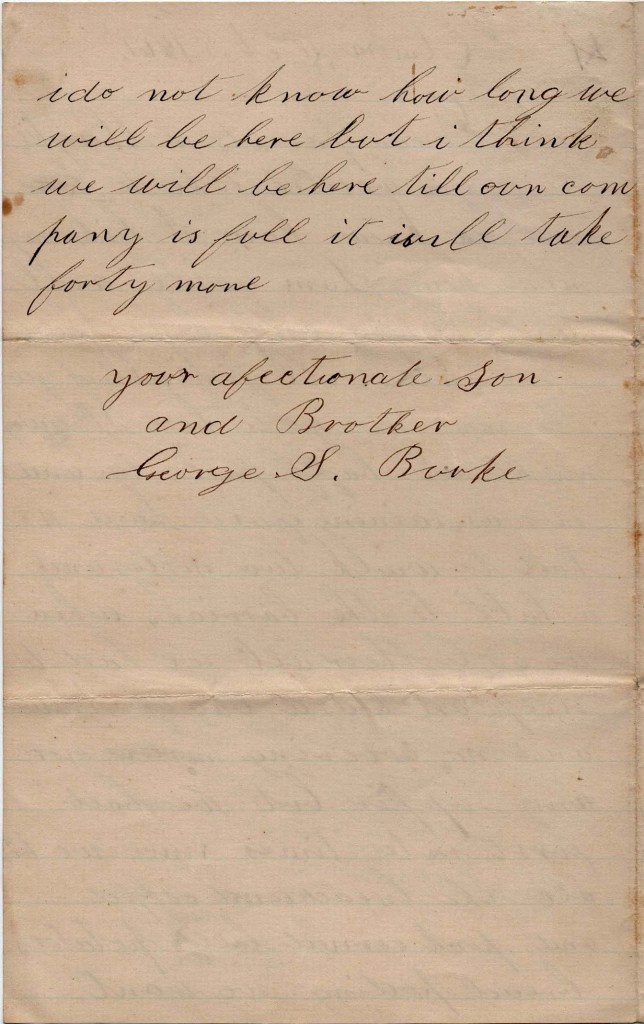 i do not know how long we
will be here but i think
we will be here till our com
pany is full it will take
forty more
your afectionate Son
and Brother
George S. Burke